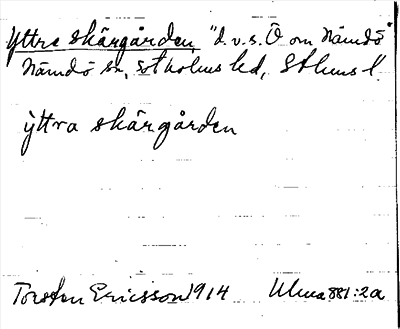 Yttre skärgården, "d.v.s. Ö om Nämdö"
Nämdö sn, Sotholms hd, Sthms l.
ýttra skärgården
Torsten Ericsson 1914 Ulma 881:2a